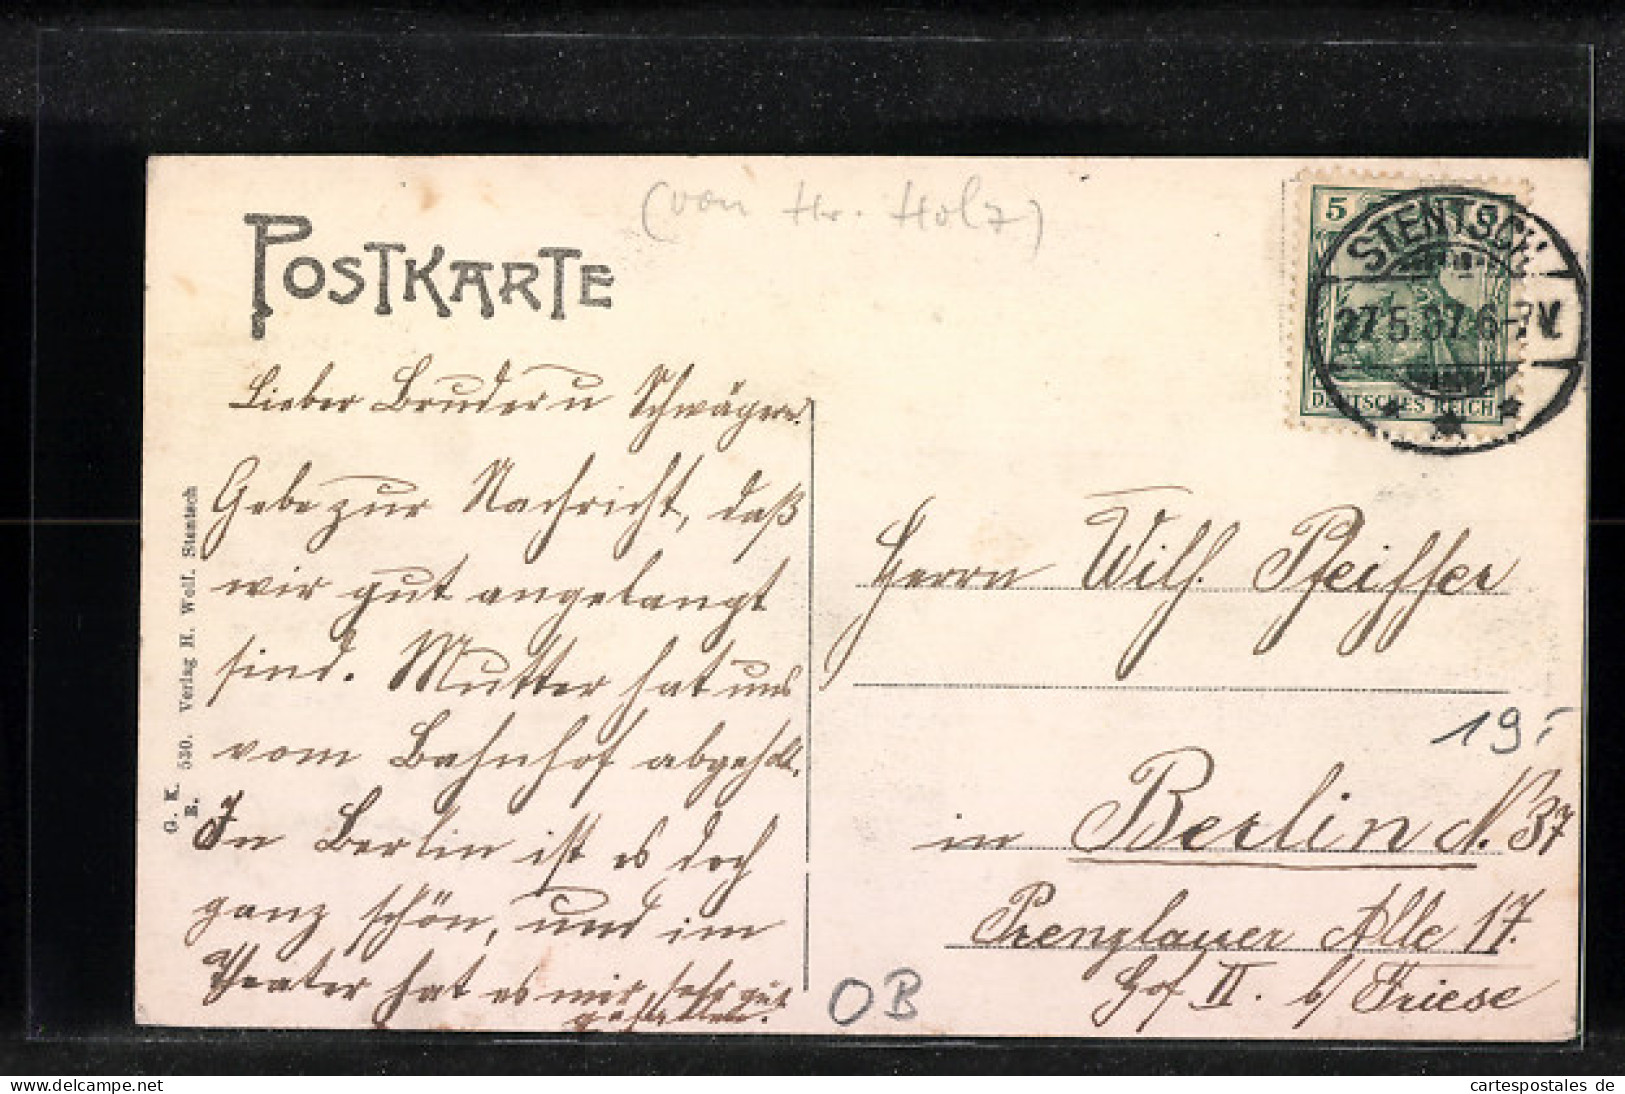 (von Hr. Holz)
POSTKARTE
5
STENTSCH
27.5.07. 6-7V.
DEUTSCHES REICH
Lieber Bruder u Schwägerin.
Gebe zur Nachricht, daß
wir gut angelangt
sind. Mutter hat uns
vom Bahnhof abgeholt.
In Berlin ist es doch
ganz schön, und im
Theater hat es mir sehr gut
gefallen.
G. K. 530. Verlag H. Wolf. Stentsch
B.
Herrn Wilh. Pfeiffer
19,-
in Berlin N. 37
Prenzlauer Alle 17.
Hof II. b/ Friese
OB
cartespostales de